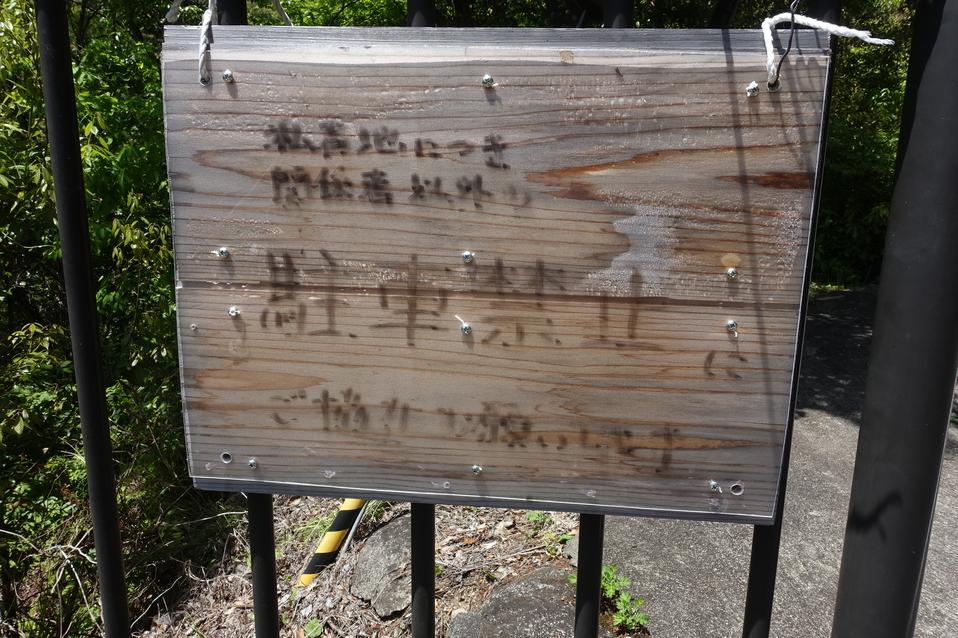 私有地につき
関係者以外の
駐車禁止に
ご協力お願いします